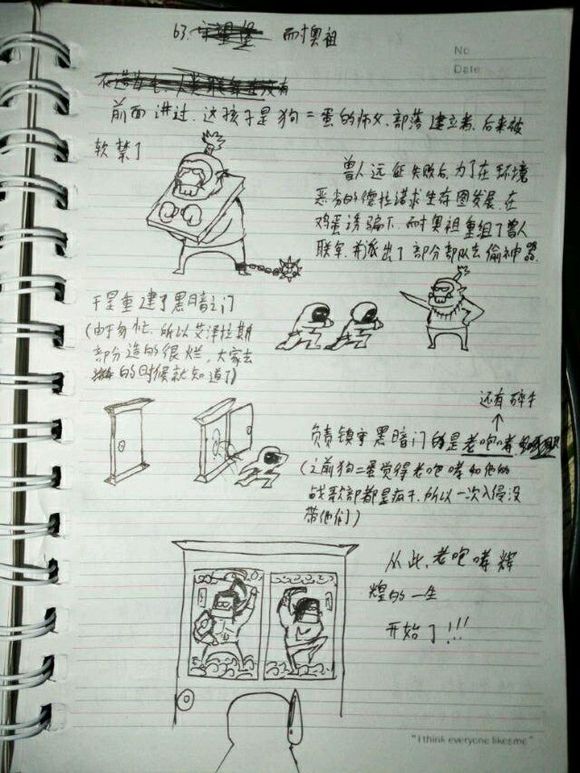 63. 守望堡 耐奥祖
No
Date
前面讲过, 这孩子是狗二蛋的师父, 部落建立者, 后来被
软禁了
兽人远征失败后, 为了在环境
恶劣的德拉诺求生存图发展, 在
鸡蛋诱骗下, 耐奥祖重组了兽人
联军, 并派出了部分部队去偷神器
于是重建了黑暗之门
(由于匆忙, 所以艾泽拉斯
部分造的很烂, 大家去
的时候就知道了)
还有碎手
负责镇守黑暗门的是老咆哮
(之前狗二蛋觉得老咆哮和他的
战歌部都是疯子, 所以一次入侵没
带他们)
从此, 老咆哮辉
煌的一生
开始了!!!
"I think everyone likes me"